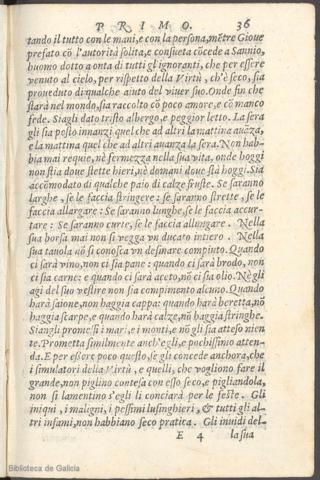 PRIMO. 36
tando il tutto con le mani, e con la persona, mẽtre Gioue
prefato cõ l'autorità solita, e consueta cõcede a Sannio,
huomo dotto a onta di tutti gl'ignoranti, che per essere
venuto al cielo, per rispetto della Virtù, ch'è seco, sia
proueduto di qualche aiuto del viuer suo. Onde fin che
starà nel mondo, sia raccolto cõ poco amore, e cõ manco
fede. Siagli dato tristo albergo, e peggior letto. La sera
gli sia posto innanzi quel che ad altri la mattina auãza,
e la mattina quel che ad altri auanza la sera. Non hab-
bia mai requie, nè fermezza nella sua vita, onde hoggi
non stia doue stette hieri, nè domani doue stà hoggi. Sia
accõmodato di qualche paio di calze fruste. Se saranno
larghe, se le faccia stringere: se saranno strette, se le
faccia allargare: Se saranno lunghe, se le faccia accur-
tare: Se saranno curte, se le faccia allungare. Nella
sua borsa mai non si vegga vn ducato intiero. Nella
sua tauola nõ si conosca vn desinare compiuto. Quando
ci sarà vino, non ci sia pane: quando ci sarà brodo, non
ci sia carne: e quando ci sarà aceto, nõ ci sia olio. Nè gli
agi del suo vestire non sia compimento alcuno. Quando
harà saione, non haggia cappa: quando harà beretta, nõ
haggia scarpe, e quando harà calze, nõ haggia stringhe.
Siangli promessi i mari, e i monti, e nõ gli sia atteso nien
te. Prometta similmente anch'egli, e pochissimo atten-
da. E per essere poco questo, se gli concede anchora, che
i simulatori della Virtù, e quelli, che vogliono fare il
grande, non piglino contesa con esso seco, e pigliandola,
non si lamentino s'egli li conciarà per le feste. Gli
iniqui, i maligni, i pessimi lusinghieri, & tutti gli al-
tri infami, non habbiano seco pratica. Gli inuidi del-
E 4 la sua
Biblioteca de Galicia